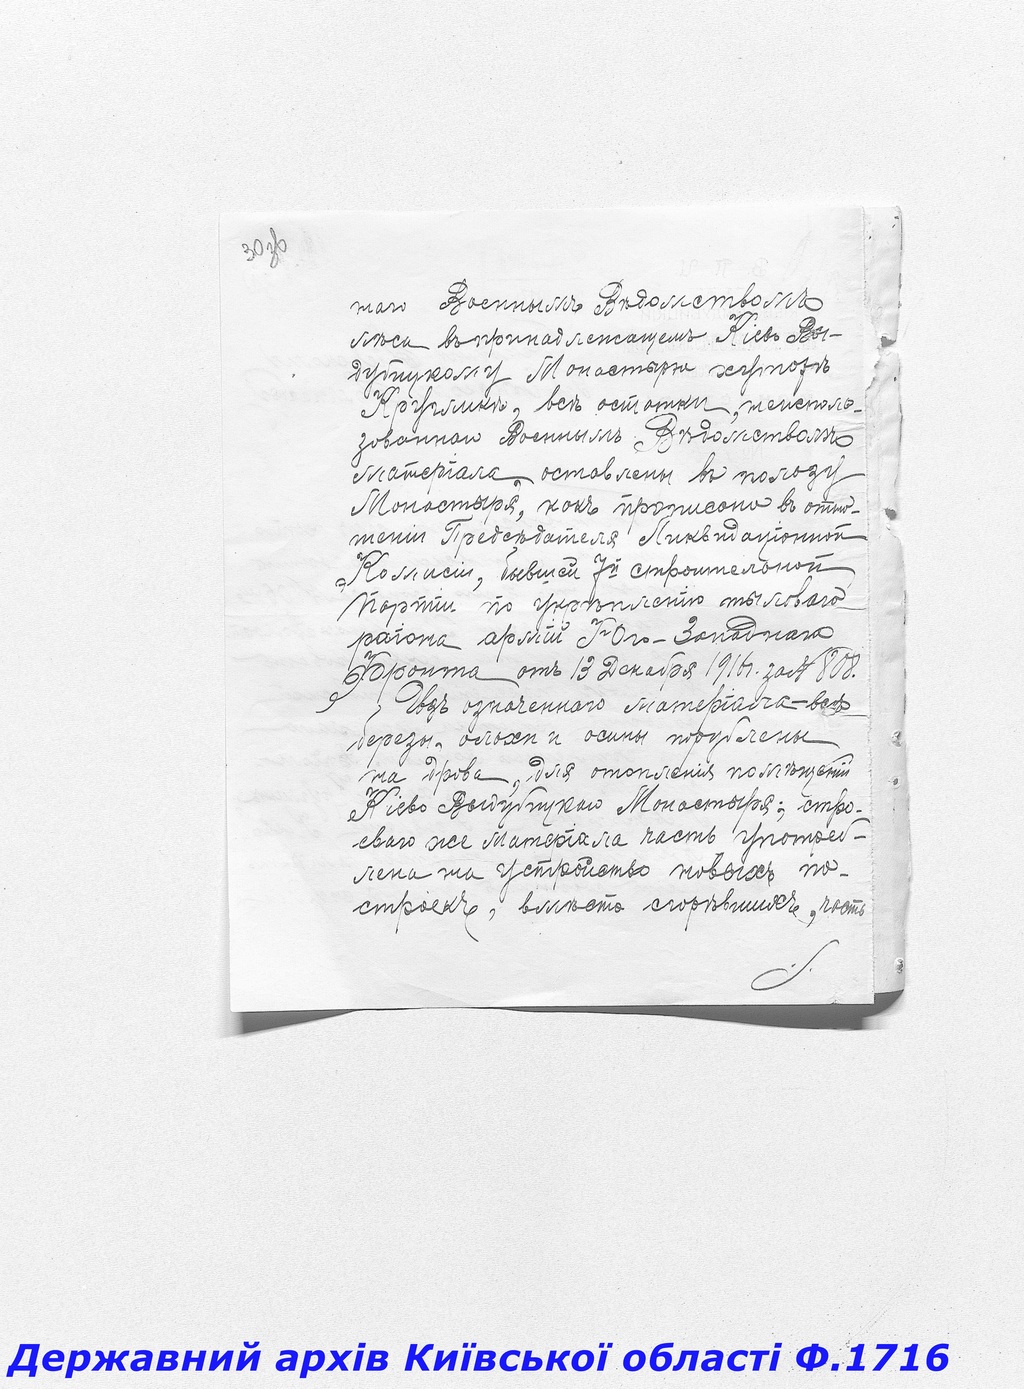 30 об
наго Военнымъ Вѣдомствомъ
лѣса въ принадлежащемъ Кіево Вы-
дубицкому Монастырю хуторѣ
Кругликѣ, всѣ остатки, неисполь-
зованнаго Военнымъ Вѣдомствомъ
матеріала, оставлены въ пользу
Монастыря, какъ прописано въ отно-
шеніи Предсѣдателя Ликвидаціонной
Комисіи, бывшей 7й строительной
партіи по укрѣпленію тыловаго
раіона армій Юго-Западнаго
Фронта отъ 13 Декабря 191 г. за № 808.
Изъ означеннаго матеріала - всѣ
березы, ольхи и осины порублены
на дрова, для отопленія помѣщеній
Кіево Выдубицкаго Монастыря; стро-
еваго же матеріала часть употреб-
лена на устройство новыхъ по-
строекъ, вмѣсто сгорѣвшихъ, часть
Державний архів Київської області Ф.1716